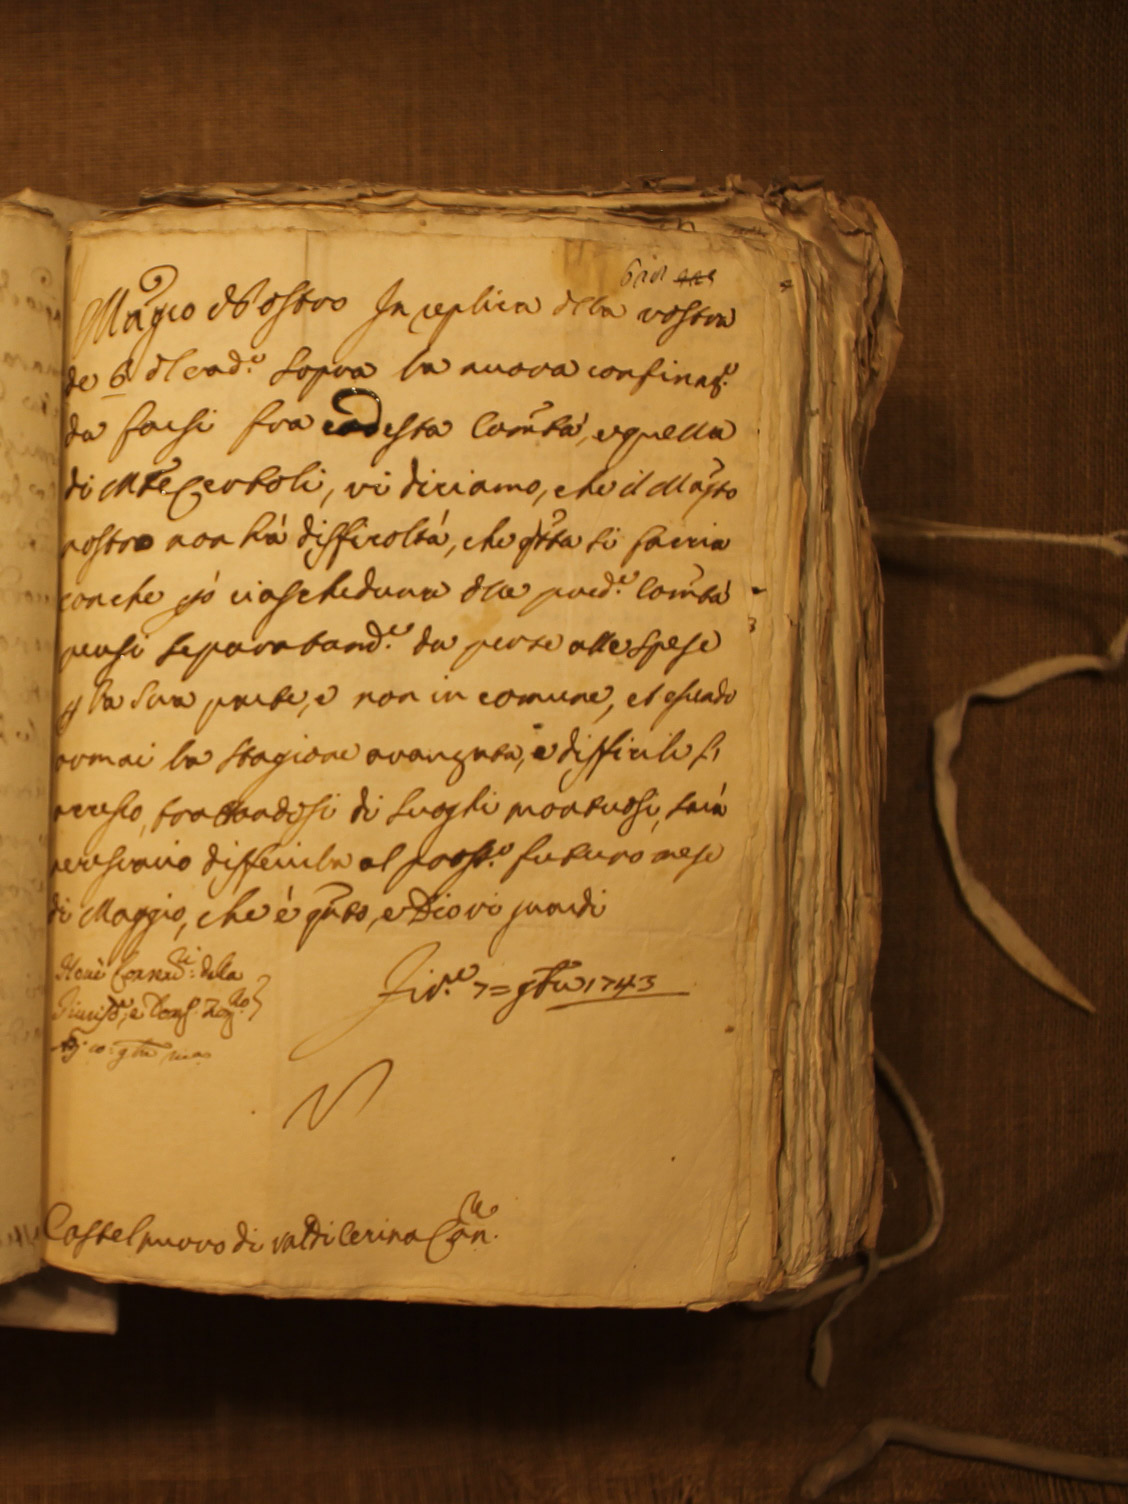 Mag.co Nostro In replica della vostra
de 6 del cad.e sopra la nuova confinaz.e
da farsi fra codesta Com.tà, e quella
di M.te Cerboli, vi diciamo, che il Mag.to
nostro non hà difficoltà, che q.sta si faccia
con che però ciascheduna delle pred.e Com.tà
pensi separatam.e da per se alle spese
p la sua parte, e non in comune, et essendo
ormai la stagione avanzata, e difficile l'
accesso, trattandosi di luoghi montuosi, sarà
necessario differirla al pross.o futuro mese
di Maggio, che è q.nto, e Dio vi guardi
Fir.e 7 = 9bre 1743
della
Castelnuovo di val di Cecina Can.re